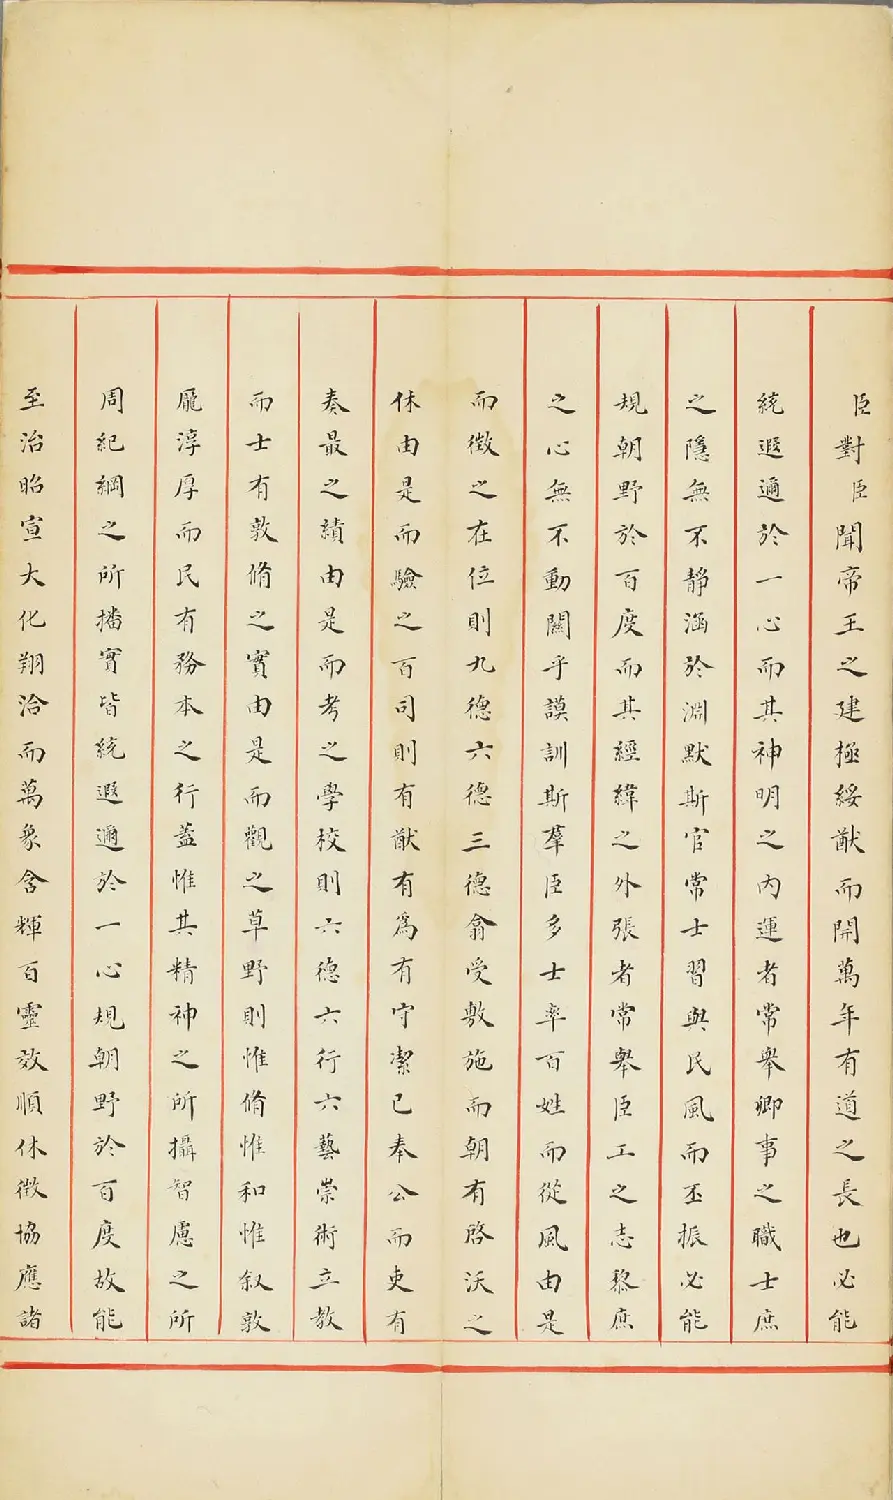 臣對臣聞帝王之建極綏猷而開萬年有道之長也必能
統遐邇於一心而其神明之內運者常舉卿事之職士庶
之隱無不靜涵於淵默斯官常士習與民風而丕振必能
規朝野於百度而其經緯之外張者常舉臣工之志黎庶
之心無不動關乎謨訓斯羣臣多士率百姓而從風由是
而徵之在位則九德六德三德翕受敷施而朝有啓沃之
休由是而驗之百司則有猷有爲有守潔己奉公而吏有
奏最之績由是而考之學校則六德六行六藝崇術立教
而士有敦脩之實由是而觀之草野則惟脩惟和惟叙敦
厖淳厚而民有務本之行蓋惟其精神之所攝智慮之所
周紀綱之所播實皆統遐邇於一心規朝野於百度故能
至治昭宣大化翔洽而萬象含輝百靈效順休徵協應諸